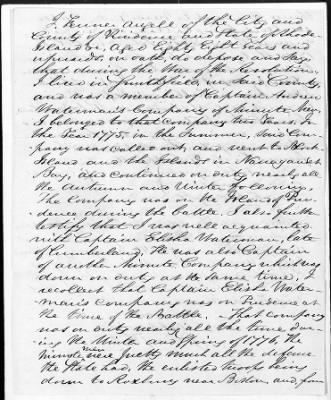 I, Fenner Angell of the City and
County of Providence and State of Rhode
Island &c, Aged Eighty Eight Years and
upwards, on oath, do depose and say
that during the War of the Revolution,
I lived in Smithfield, in said County,
and was a member of Captain Andrew
Waterman's Company of Minute Men.
I belonged to that Company two Years. In
the Year 1775, in the Summer, said Com-
pany was called out, and went to Block
Island and the Islands in Narragansett
Bay, and continued on duty nearly all
the Autumn and Winter following.
The Company was on the Island of Pru-
dence during the battle. I also further
testify that I was well acquainted
with Captain Elisha Waterman, late
of Cumberland, He was also Captain
of another Minute Company which was
down on duty at the same time, I
recollect that Captain Elisha Water-
man's Company was on Prudence at
the time of the Battle. That company
was on duty nearly all the time du-
ring the Winter and Spring of 1776, the
Minute men were pretty much all the defence
the State had, the enlisted troops being
down to Roxbury near Boston, and from